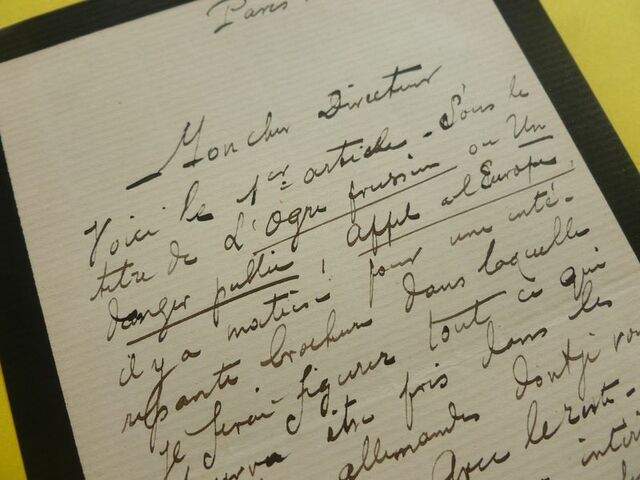 Paris
Mon cher Directeur
Voici le 1er article - Sous le
titre de L'Ogre prussien ou Un
danger public ! appel à l'Europe,
il y a matière pour une inté-
ressante brochure dans laquelle
je ferai figurer tout ce qui
être pris dans les
allemandes dont je
Avec le